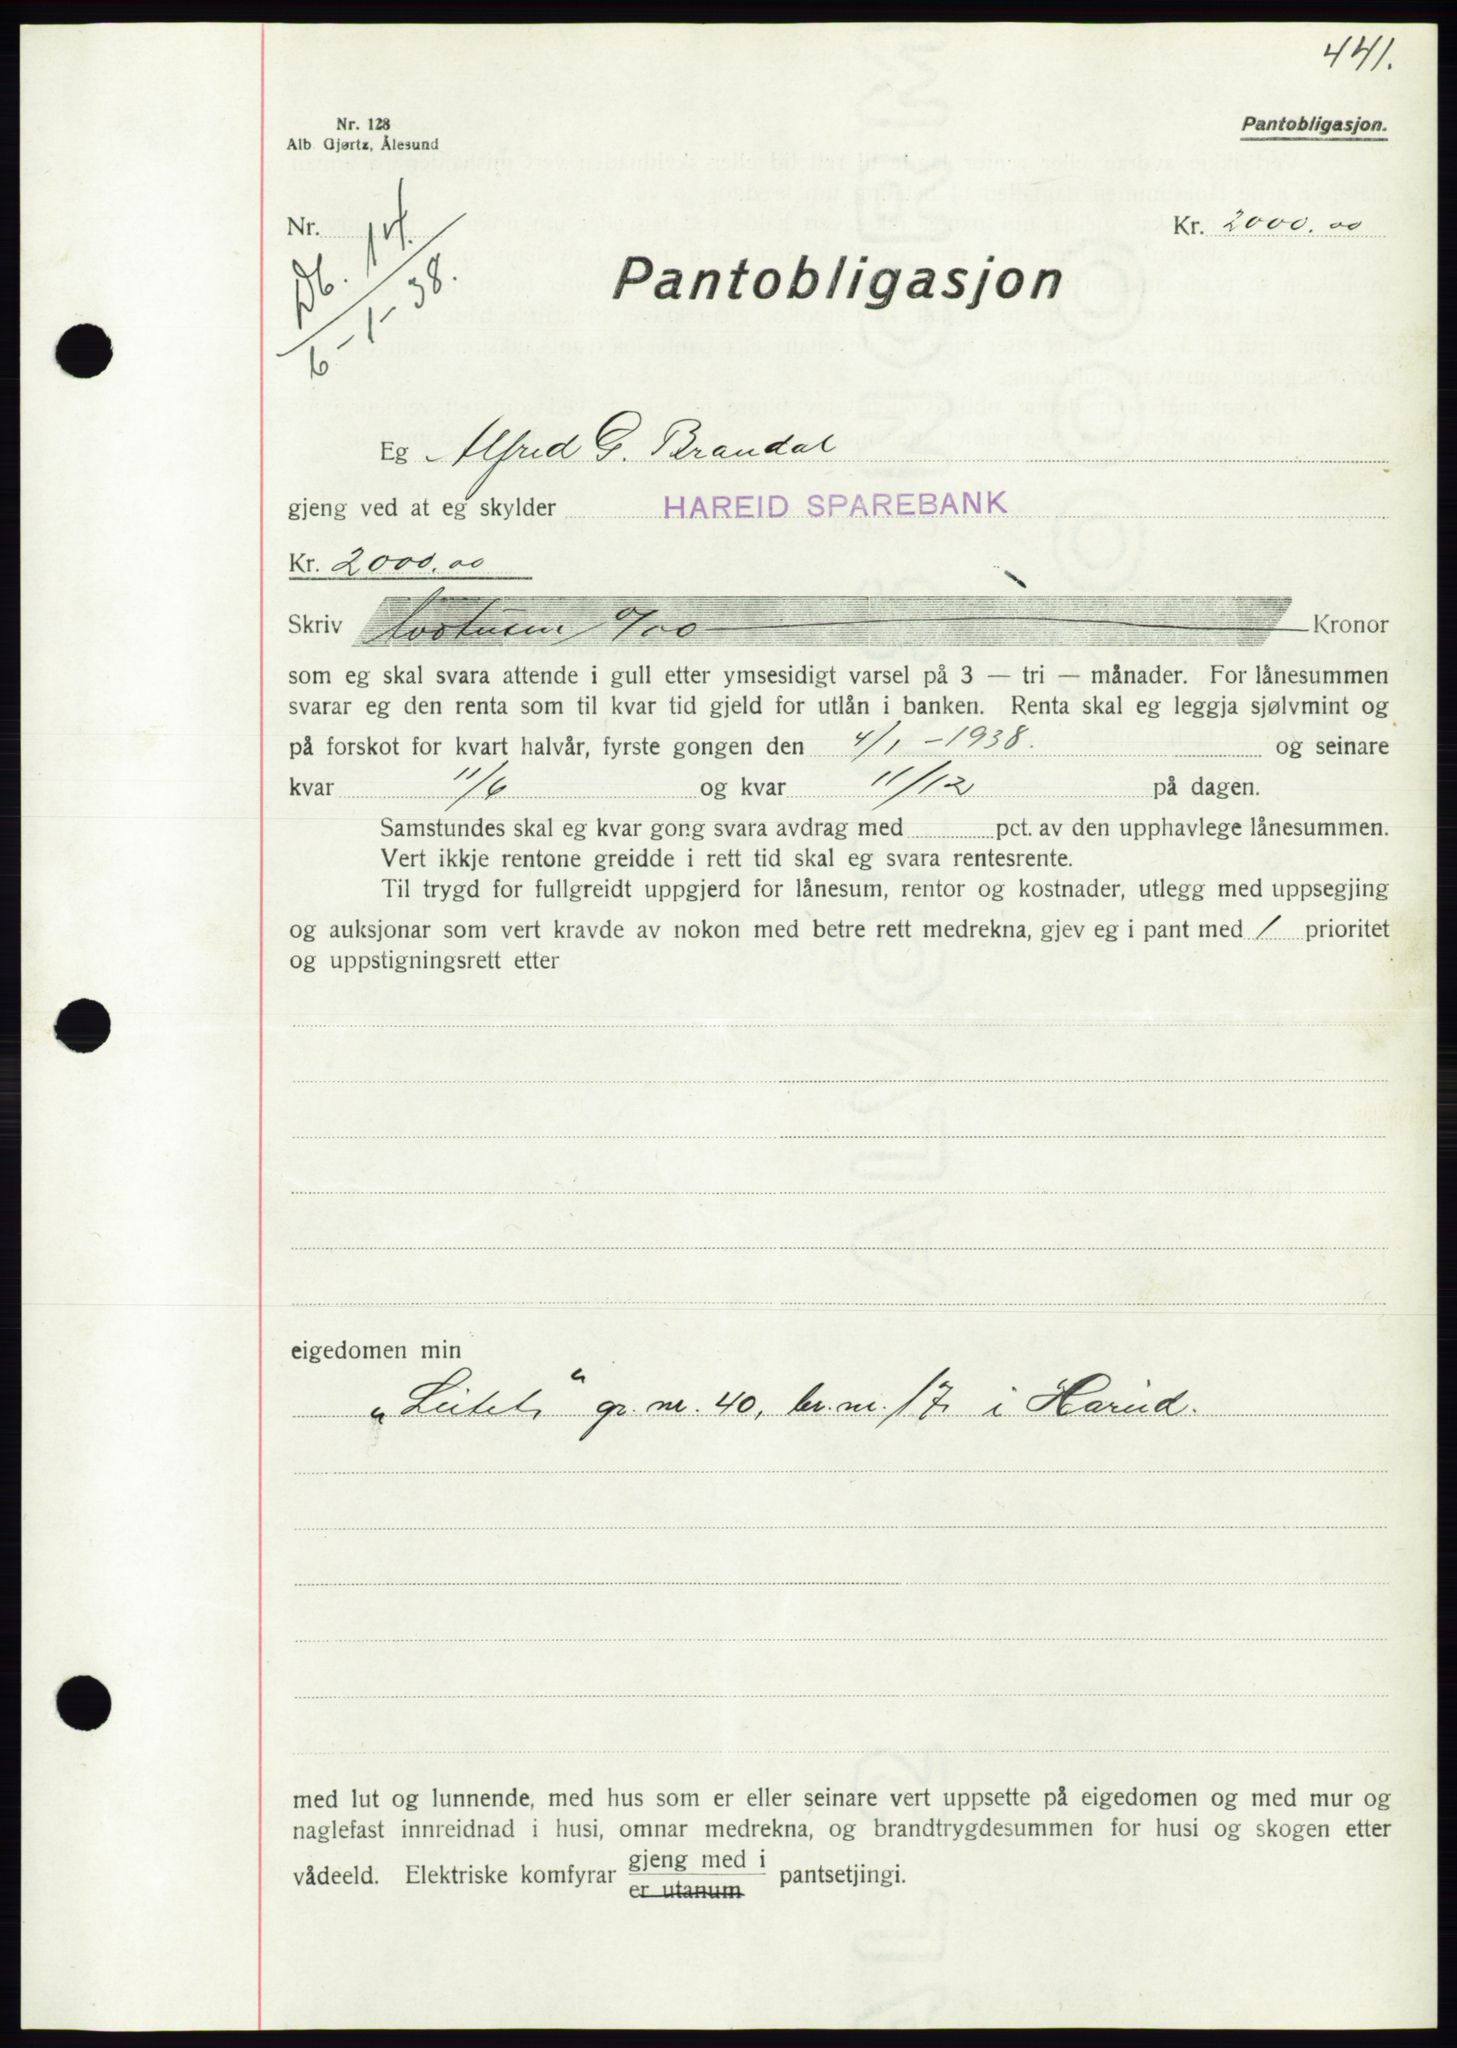 441.
Nr. 128
Alb. Gjørtz, Ålesund
Pantobligasjon.
Nr.
Db. 14.
6-1-38.
Kr. 2000.00
Pantobligasjon
Eg Alfred G. Brandal
gjeng ved at eg skylder HAREID SPAREBANK
Kr. 2000.00
Skriv totusen 0/00 Kronor
som eg skal svara attende i gull etter ymsesidigt varsel på 3 — tri — månader. For lånesummen
svarar eg den renta som til kvar tid gjeld for utlån i banken. Renta skal eg leggja sjølvmint og
på forskot for kvart halvår, fyrste gongen den 4/1-1938. og seinare
kvar 11/6 og kvar 11/12 på dagen.
Samstundes skal eg kvar gong svara avdrag med pct. av den upphavlege lånesummen.
Vert ikkje rentone greidde i rett tid skal eg svara rentesrente.
Til trygd for fullgreidt uppgjerd for lånesum, rentor og kostnader, utlegg med uppsegjing
og auksjonar som vert kravde av nokon med betre rett medrekna, gjev eg i pant med 1 prioritet
og uppstigningsrett etter
eigedomen min
„Leitet“ gr. nr. 40, br. nr. 17 i Hareid.
med lut og lunnende, med hus som er eller seinare vert uppsette på eigedomen og med mur og
naglefast innreidnad i husi, omnar medrekna, og brandtrygdesummen for husi og skogen etter
vådeeld. Elektriske komfyrar gjeng med i pantsetjingi.
er utanum